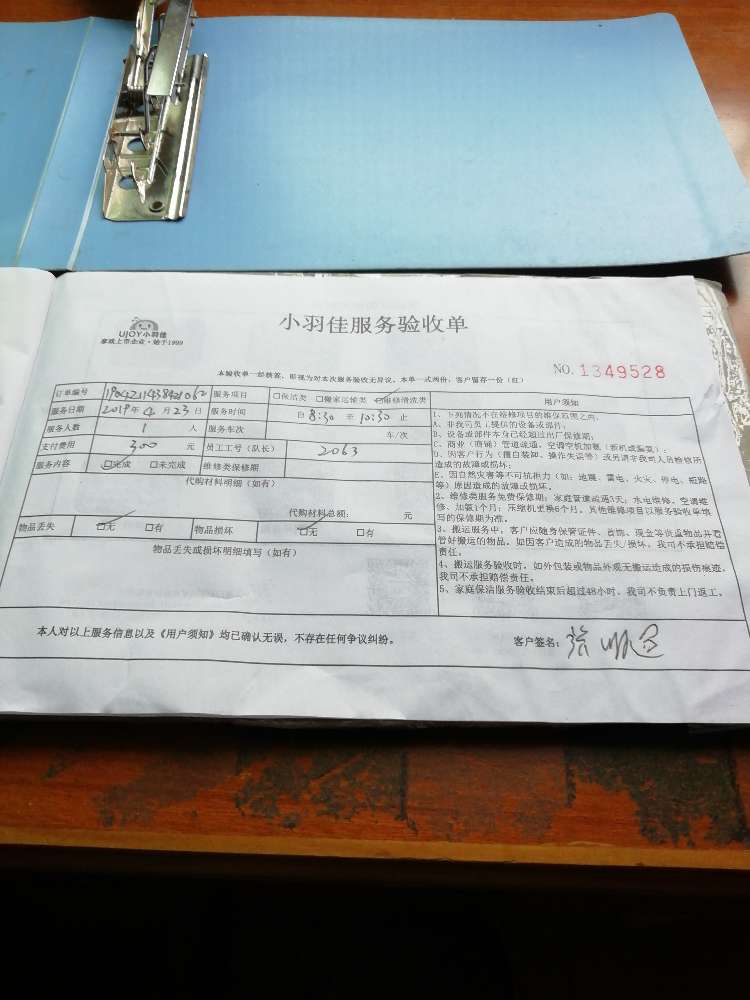 小羽佳服务验收单
UJOY小羽佳
家政上市企业·始于1999
本验收单一经核签，即视为对本次服务验收无异议。本单一式两份，客户留存一份（红）
NO. 1349528
订单编号 服务项目 □保洁类 □搬家运输类 ☑维修清洗类
服务日期 2019年 4月 23日 服务时间 自 8:30 至 10:30 止
服务人数 1 人 服务车次 车/次
支付费用 300 元 员工工号（队长） 2063
服务内容 ☑完成 □未完成 维修类保修期
代购材料明细（如有）
代购材料总额： 元
物品丢失 ☑无 □有 物品损坏 ☑无 □有
物品丢失或损坏明细填写（如有）
用户须知
1、下列情况不在维修项目的维保范围之内：
A、非我司员工提供的设备或部件；
B、设备或部件本身已经超过出厂保修期；
C、商业（商铺）管道疏通、空调空机加氨（拆机或漏氨）；
D、因客户行为（擅自装卸、操作失误等）或另请非我司人员检修所
造成的故障或损坏；
E、因自然灾害等不可抗拒力（如：地震、雷电、火灾、停电、短路
等）原因造成的故障或损坏。
2、维修类服务免费保修期：家庭管道疏通3天；水电维修、空调维
修、加氨1个月；压缩机更换6个月。其他维修项目以服务验收单填
写的保修期为准。
3、搬运服务中，客户应随身保管证件、首饰、现金等贵重物品并看
管好搬运的物品。如因客户造成的物品丢失/损坏，我司不承担赔偿
责任。
4、搬运服务验收时，如外包装或物品外观无搬运造成的损伤痕迹，
我司不承担赔偿责任。
5、家庭保洁服务验收结束后超过48小时，我司不负责上门返工。
本人对以上服务信息以及《用户须知》均已确认无误，不存在任何争议纠纷。
客户签名：